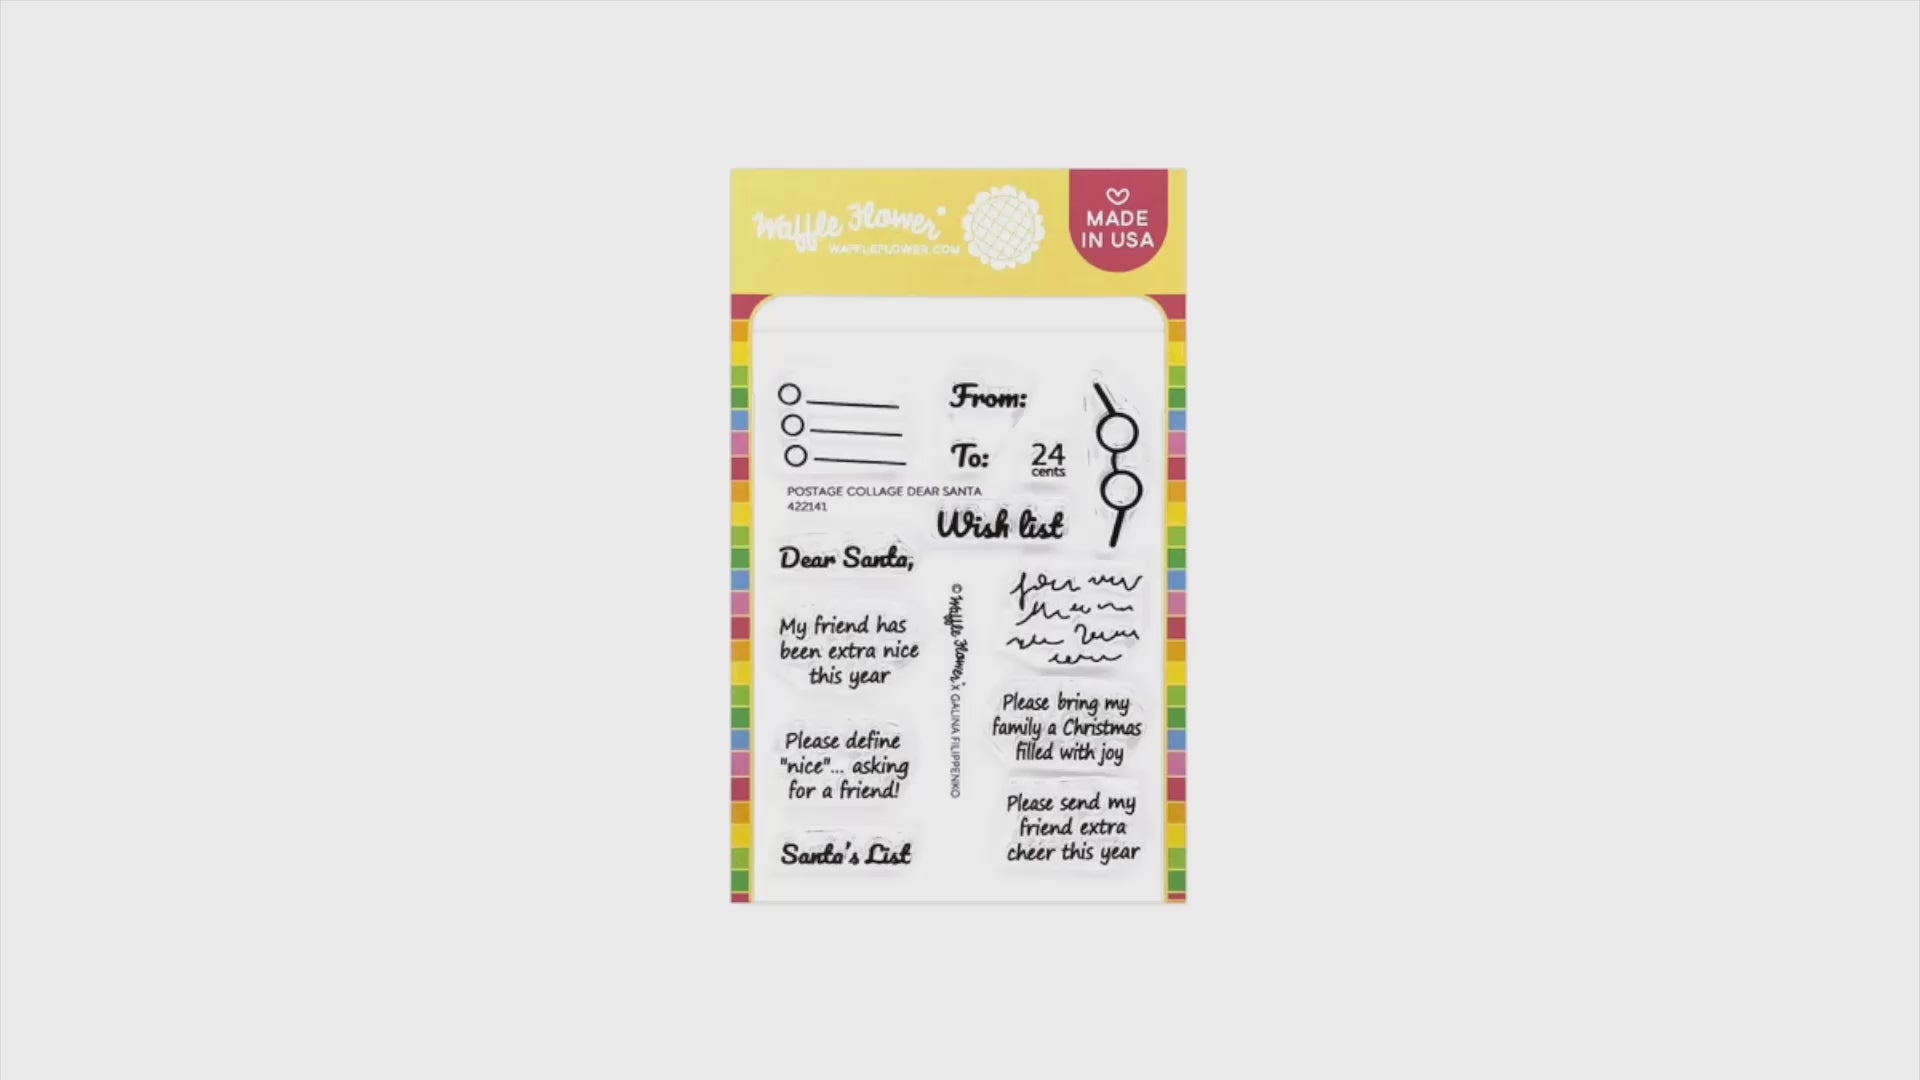 Waffle Flower
WAFFLEFLOWER.COM
MADE
IN USA
From:
To:
24
cents
POSTAGE COLLAGE DEAR SANTA
422141
Wish list
Dear Santa,
My friend has
been extra nice
this year
© Waffle Flower X GALINA FILIPPENKO
Please define
"nice"... asking
for a friend!
Santa's List
Please bring my
family a Christmas
filled with joy
Please send my
friend extra
cheer this year